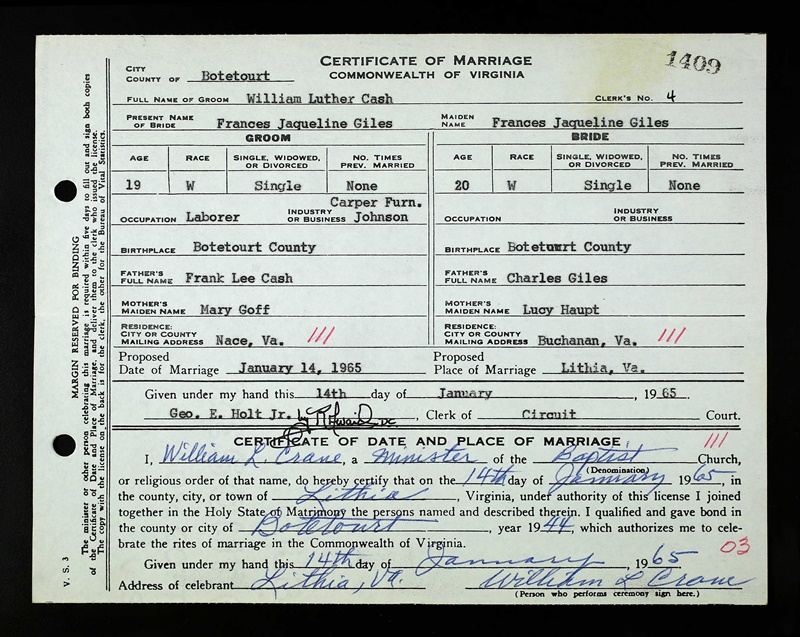 CERTIFICATE OF MARRIAGE
COMMONWEALTH OF VIRGINIA
1409
CITY
COUNTY OF Botetourt
FULL NAME OF GROOM William Luther Cash CLERK'S NO. 4
PRESENT NAME OF BRIDE Frances Jaqueline Giles MAIDEN NAME Frances Jaqueline Giles
GROOM BRIDE
AGE RACE SINGLE, WIDOWED, OR DIVORCED NO. TIMES PREV. MARRIED AGE RACE SINGLE, WIDOWED, OR DIVORCED NO. TIMES PREV. MARRIED
19 W Single None 20 W Single None
OCCUPATION Laborer INDUSTRY OR BUSINESS Carper Furn. Johnson OCCUPATION INDUSTRY OR BUSINESS
BIRTHPLACE Botetourt County BIRTHPLACE Botetourt County
FATHER'S FULL NAME Frank Lee Cash FATHER'S FULL NAME Charles Giles
MOTHER'S MAIDEN NAME Mary Goff MOTHER'S MAIDEN NAME Lucy Haupt
RESIDENCE: CITY OR COUNTY MAILING ADDRESS Nace, Va. /// RESIDENCE: CITY OR COUNTY MAILING ADDRESS Buchanan, Va. ///
Proposed Date of Marriage January 14, 1965 Proposed Place of Marriage Lithia, Va.
Given under my hand this 14th day of January, 1965
Geo. E. Holt Jr. by DC, Clerk of Circuit Court.
CERTIFICATE OF DATE AND PLACE OF MARRIAGE ///
I, William L. Crane, a Minister of the Baptist Church,
(Denomination)
or religious order of that name, do hereby certify that on the 14th day of January 1965, in
the county, city, or town of Lithia, Virginia, under authority of this license I joined
together in the Holy State of Matrimony the persons named and described therein. I qualified and gave bond in
the county or city of Botetourt, year 1944, which authorizes me to cele-
brate the rites of marriage in the Commonwealth of Virginia.
03
Given under my hand this 14th day of January, 1965
Address of celebrant Lithia, Va. William L Crane
(Person who performs ceremony sign here.)
V. S. 3
MARGIN RESERVED FOR BINDING
The minister or other person celebrating this marriage is required within five days to fill out and sign both copies
of the Certificate of Date and Place of Marriage, and deliver them to the clerk who issued the license.
The copy with the license on the back is for the clerk, the other for the Bureau of Vital Statistics.